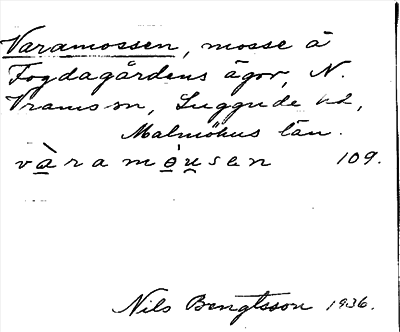 Varamossen, mosse å
Fogdagårdens ägor, N.
Vrams sn, Luggude hd,
Malmöhus län.
vàramȯ̤u̠sen 109.
Nils Bengtsson 1936.